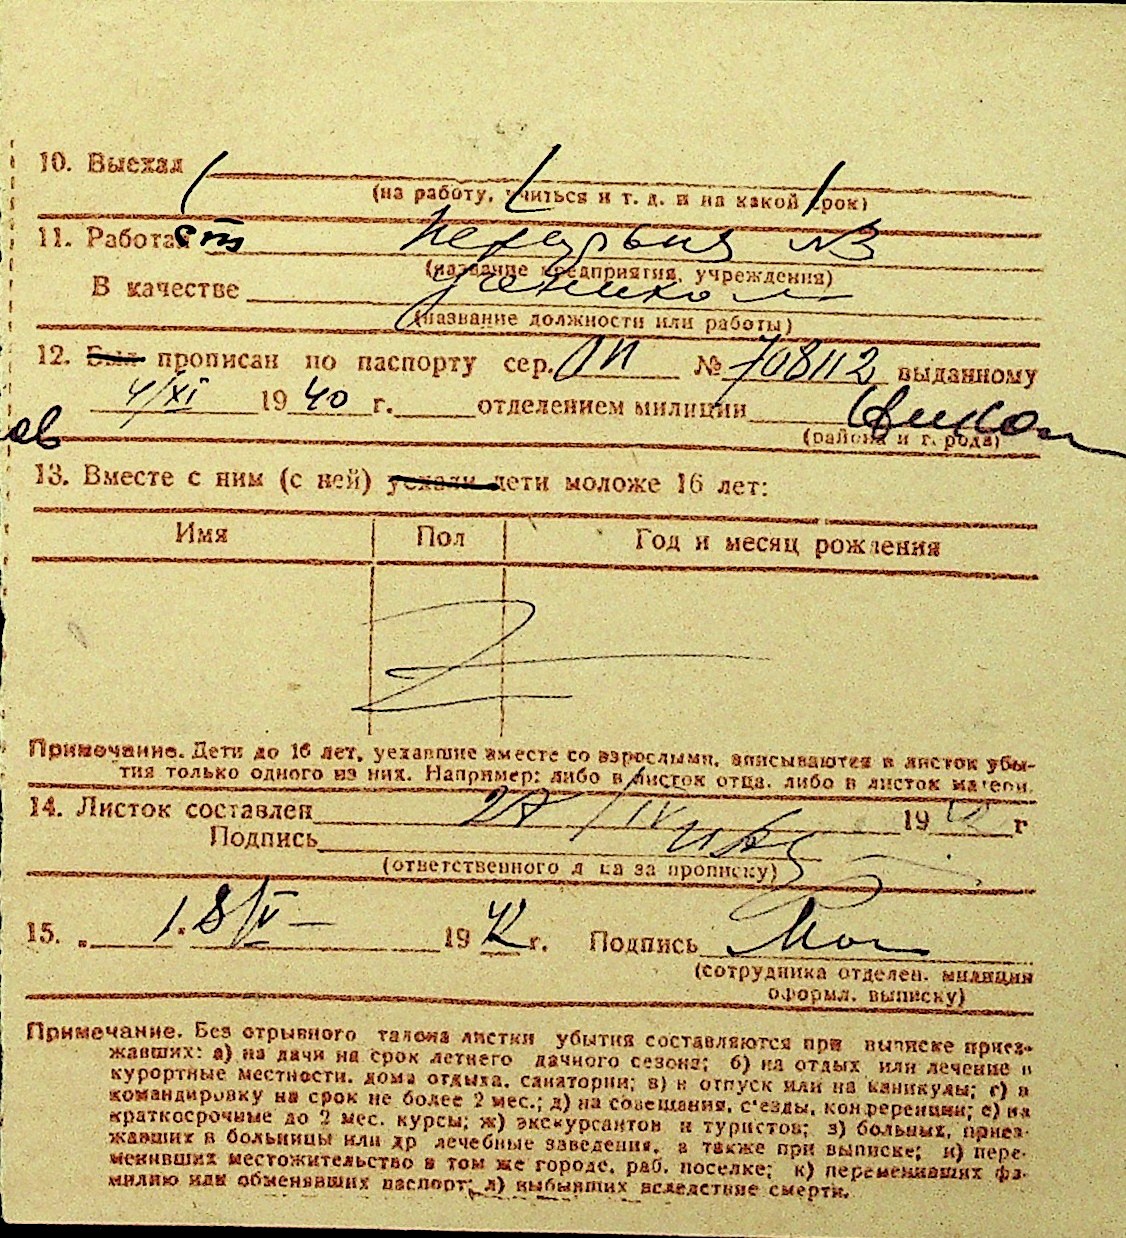 10. Выехал
(на работу, учиться и т. д. и на какой срок)
11. Работает Пекарня №3
(название предприятия, учреждения)
В качестве учеником
(название должности или работы)
12. Был прописан по паспорту сер. № 708112 выданному
4/XI 1940 г. отделением милиции
ов
(района и города)
13. Вместе с ним (с ней) уехали дети моложе 16 лет:
Имя Пол Год и месяц рождения
Примечание. Дети до 16 лет, уехавшие вместе со взрослыми, вписываются в листок убы-
тия только одного из них. Например: либо в листок отца, либо в листок матери.
14. Листок составлен 27/IV 1942 г
Подпись
(ответственного лица за прописку)
15. 1942 г. Подпись
(сотрудника отделен. милиции
оформл. выписку)
Примечание. Без отрывного талона листки убытия составляются при выписке приез-
жавших: а) на дачи на срок летнего дачного сезона; б) на отдых или лечение в
курортные местности, дома отдыха, санатории; в) в отпуск или на каникулы; г) в
командировку на срок не более 2 мес.; д) на совещания, с'езды, конференции; е) на
краткосрочные до 2 мес. курсы; ж) экскурсантов и туристов; з) больных, приез-
жавших в больницы или др лечебные заведения, а также при выписке; и) пере-
менивших местожительство в том же городе, раб. поселке; к) переменивших фа-
милию или обменявших паспорт; л) выбывших вследствие смерти.